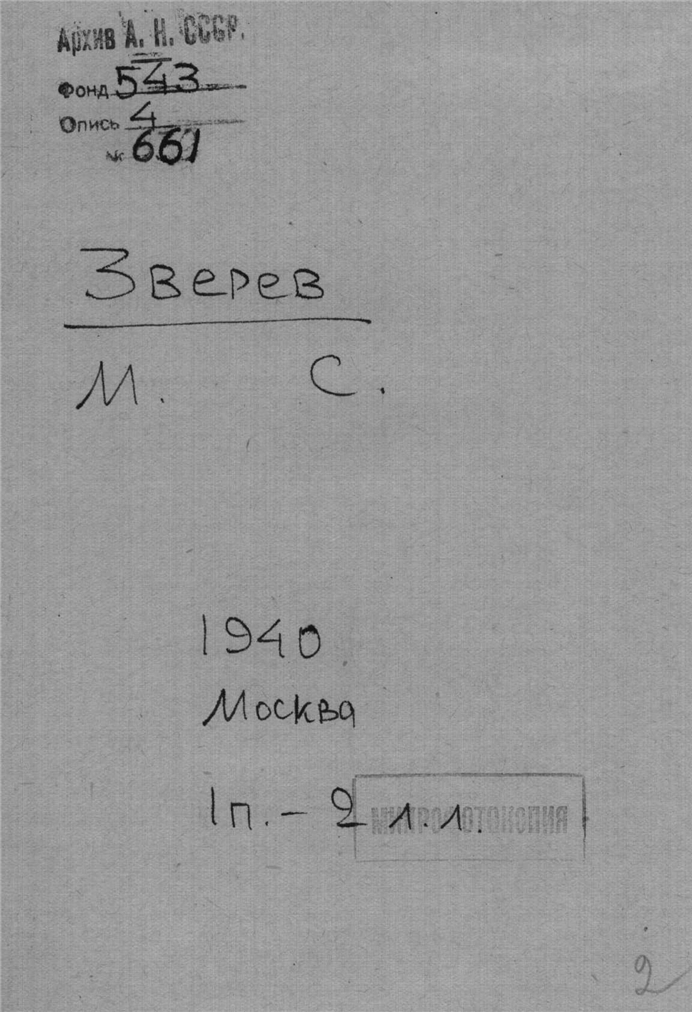 Архив А. Н. СССР.
Фонд 543
Опись 4
№ 661
Зверев
М. С.
1940
Москва
1п. - 2 л.л.
МИКРОФОТОКОПИЯ
2